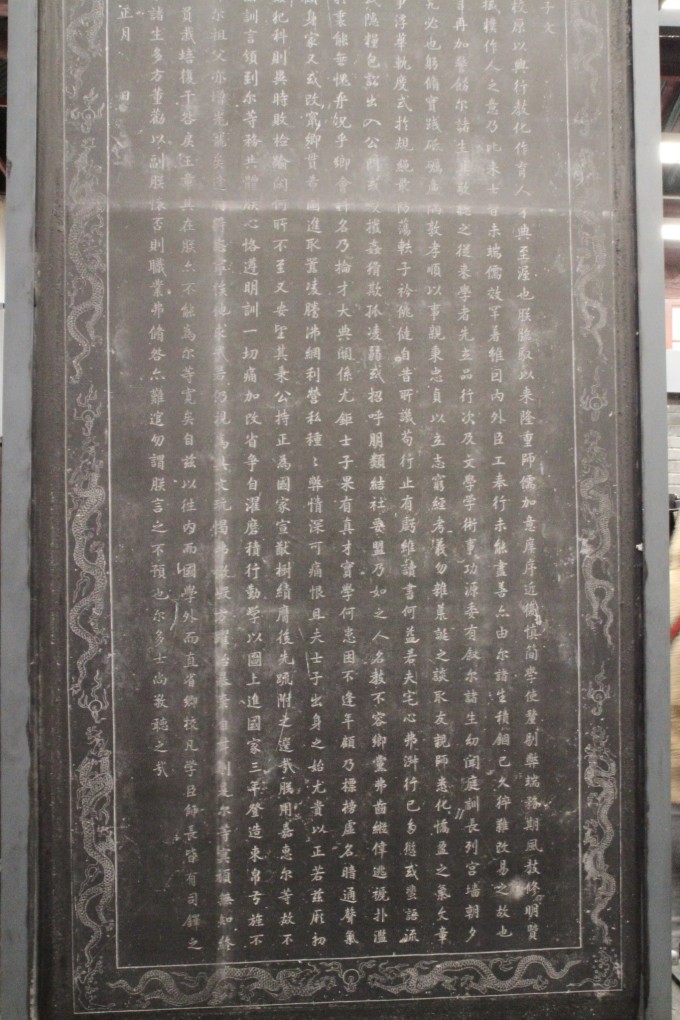 子文
校原以興行教化作育人才典至渥也朕臨馭以来隆重師儒加意庠序近復慎簡學使釐剔弊端務期風教修明賢
棫樸作人之意乃比来士習未端儒效罕著雖因内外臣工奉行未能盡善亦由尔諸生積錮已久猝難改易之故也
言再加警飭尔諸生其敬聽之從来學者先立品行次及文學學術事功源委有敘尔諸生幼聞庭訓長列宫墻朝夕
究必也躬脩實踐砥礪廉隅敦孝順以事親秉忠貞以立志窮經考義勿雜荒誕之談取友親師悉化憍盈之氣文章
事浮華軌度式扵規繩最防蕩軼子衿佻健自昔所譏苟行止有虧雖讀書何益若夫宅心弗淑行已多愆或蜚語流
或隱糧包訟出入公門或唆撥姦猾欺孤凌弱或招呼朋類結社要盟乃如之人名教不容鄉黨弗齒縱倖逃褫扑濫
扵衷能無愧乎况乎鄉會科名乃掄才大典関係尤鉅士子果有真才實學何患困不逢年顧乃標榜虛名暗通聲氣
顧身家又或改竄鄉貫希圖進取囂凌騰沸網利營私種〻弊情深可痛恨且夫士子出身之始尤貴以正若兹厥初
姦犯科則異時敗檢踰閑何所不至又安望其秉公持正為國家宣猷樹績膺後先疏附之選哉朕用嘉惠尔等故不
兹訓言頒到尔等務共體朕心恪遵明訓一切痛加改省争自濯磨積行勤學以圖上進國家三年登造束帛弓旌不
即尔祖父亦增光寵矣逢時得志寧俟他求哉若仍視為具文玩愒弗儆毀方躍冶暴棄自甘則是尔等冥頑無知終
負栽培復干咎戾王章具在朕亦不能爲尔等寬矣自兹以往内而國學外而直省鄉校凡學臣師長皆有司鐸之
諸生多方董勸以副朕懷否則職業弗脩咎亦難逭勿謂朕言之不預也尔多士尚敬聴之哉
正月 日